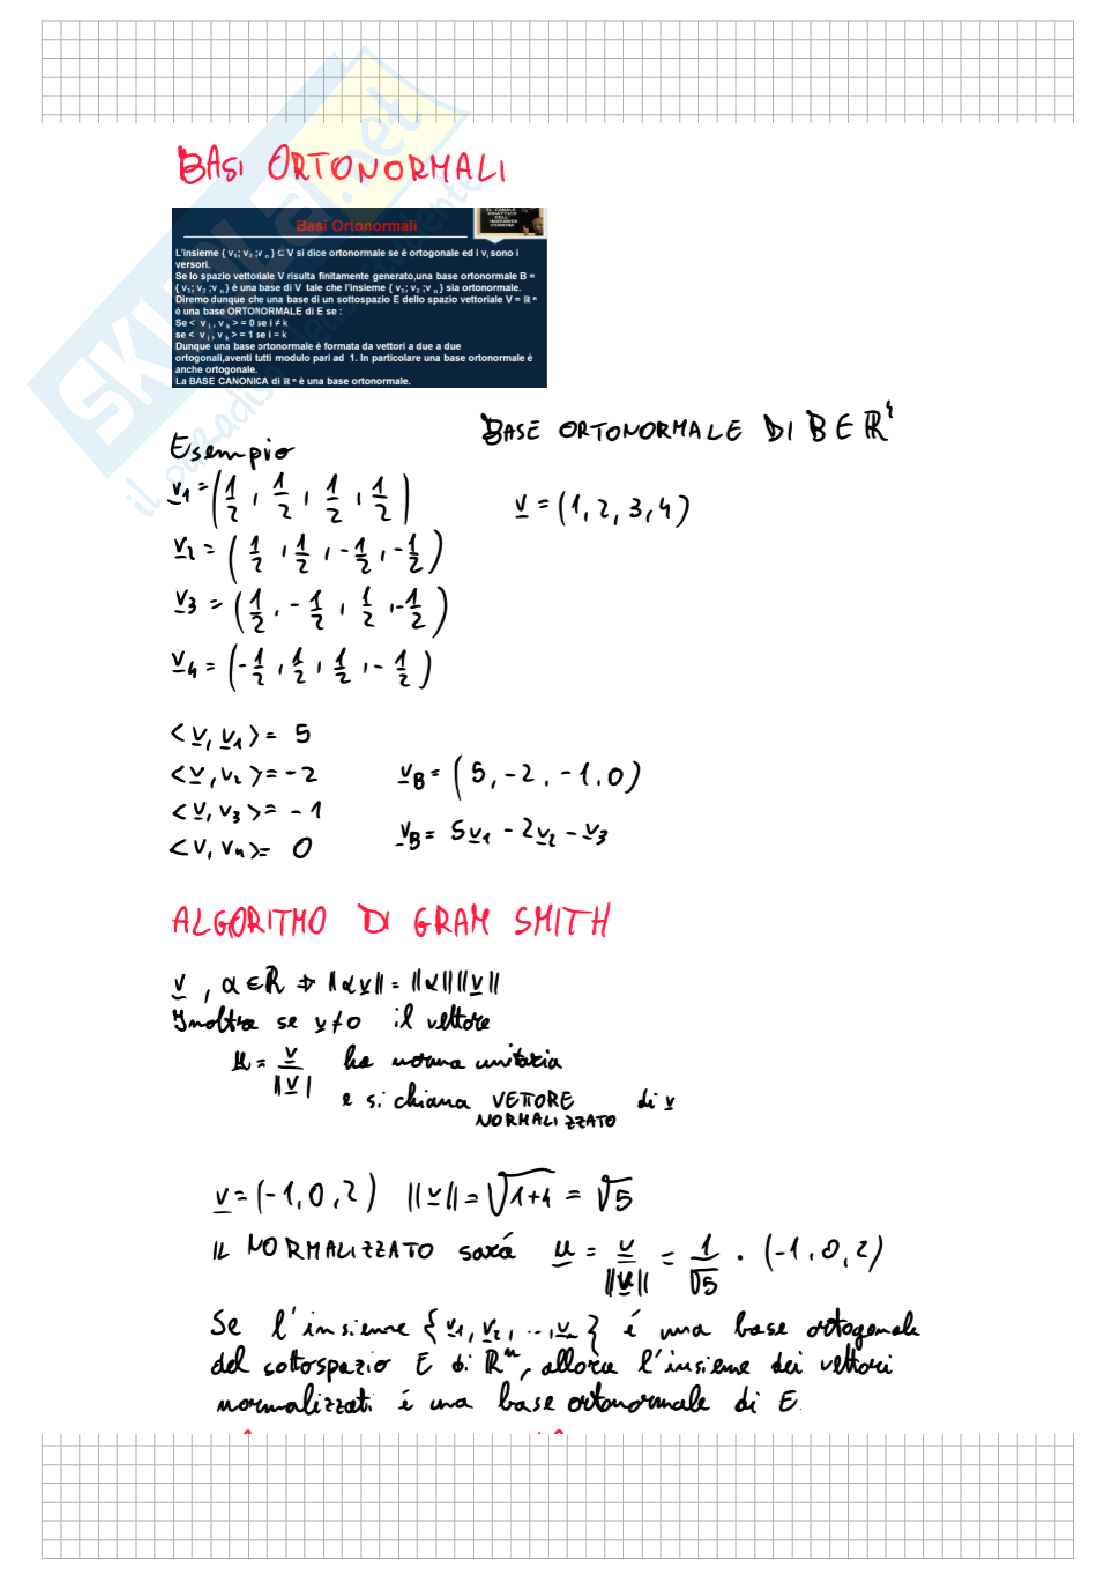 BASI ORTONORMALI
Basi Ortonormali
L'insieme { v₁; v₂ ;v ₙ} ⊂ V si dice ortonormale se è ortogonale ed i vᵢ sono i
versori.
Se lo spazio vettoriale V risulta finitamente generato,una base ortonormale B =
{ v₁; v₂ ;v ₙ} è una base di V tale che l'insieme { v₁; v₂ ;v ₙ} sia ortonormale.
Diremo dunque che una base di un sottospazio E dello spazio vettoriale V = ℝ ⁿ
è una base ORTONORMALE di E se :
Se < v ᵢ , v ₖ > = 0 se i ≠ k
se < v ᵢ , v ₖ > = 1 se i = k
Dunque una base ortonormale è formata da vettori a due a due
ortogonali,aventi tutti modulo pari ad 1. In particolare una base ortonormale è
anche ortogonale.
La BASE CANONICA di ℝ ⁿ è una base ortonormale.
BASE ORTONORMALE DI B ∈ ℝ⁴
Esempio
v₁ = (1/2, 1/2, 1/2, 1/2)
v = (1, 2, 3, 4)
v₂ = (1/2, 1/2, -1/2, -1/2)
v₃ = (1/2, -1/2, 1/2, -1/2)
v₄ = (-1/2, 1/2, 1/2, -1/2)
<v, v₁> = 5
<v, v₂> = -2
v_B = (5, -2, -1, 0)
<v, v₃> = -1
v_B = 5v₁ - 2v₂ - v₃
<v, v₄> = 0
ALGORITMO DI GRAM SMITH
v, α ∈ ℝ ⇒ ||αv|| = ||α|| ||v||
Inoltre se v ≠ 0 il vettore
u = v/||v|| ha norma unitaria
e si chiama VETTORE NORMALIZZATO di v
v = (-1, 0, 2) ||v|| = √1+4 = √5
IL NORMALIZZATO sará u = v/||v|| = 1/√5 · (-1, 0, 2)
Se l'insieme {v₁, v₂, ..., vₙ} é una base ortogonale
del sottospazio E di ℝⁿ, allora l'insieme dei vettori
normalizzati é una base ortonormale di E.
SKUOLA.net